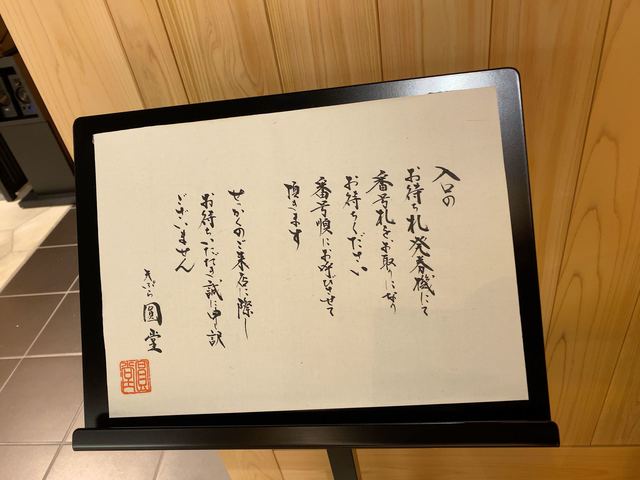 入口の
お待ち札発券機にて
番号札をお取りになり
お待ちください
番号順にお呼びさせて
頂きます
せっかくのご来店に際し
お待ちいただき誠に申し訳
ございません
天ぷら 圓堂
圓堂